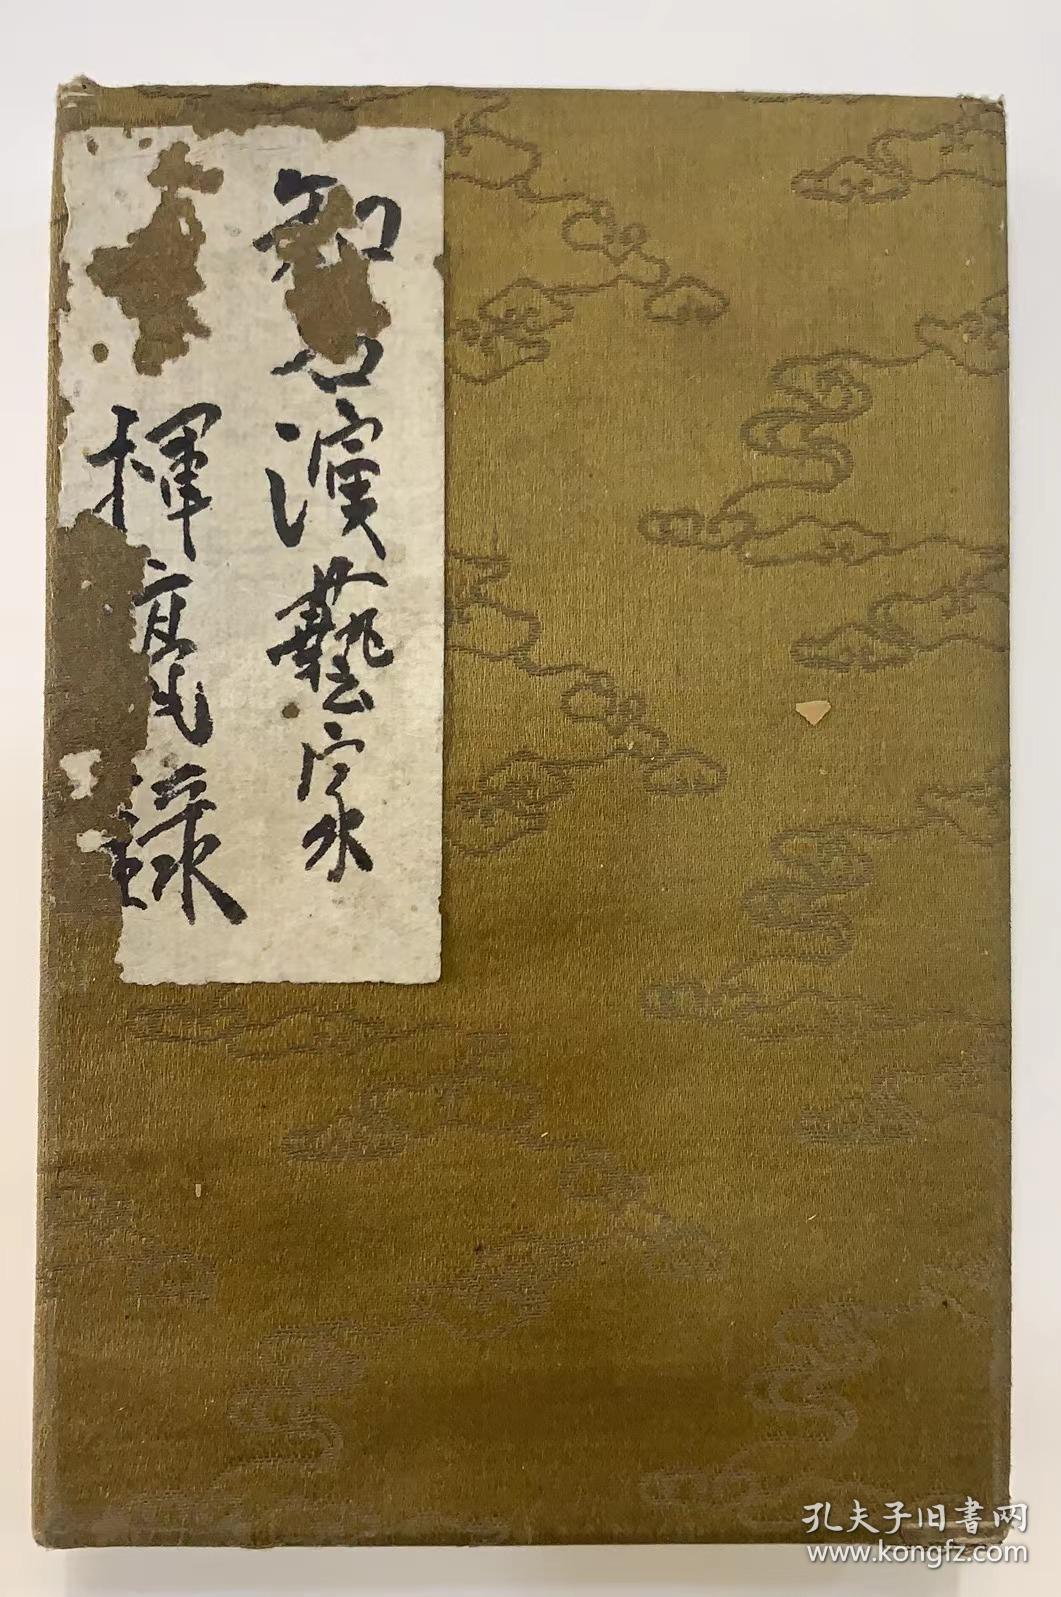 知名演藝家
揮毫錄
孔夫子旧書网
www.kongfz.com